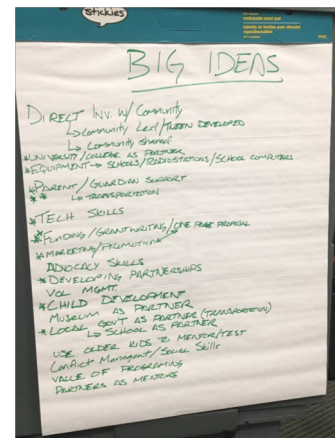 stickies
BIG IDEAS
DIRECT INV. W/ Community
↳ Community Led/TWEEN DEVELOPED
↳ Community shared
*UNIVERSITY/COLLEGE AS PARTNER
*EQUIPMENT → SCHOOLS/RADIOSTATIONS/SCHOOL COMPUTERS
*PARENT/GUARDIAN SUPPORT
** ↳ TRANSPORTATION
*TECH SKILLS
*FUNDING/GRANTWRITING/ONE PAGE PROPOSAL
*MARKETING/PROMOTION
ADVOCACY SKILLS
*DEVELOPING PARTNERSHIPS
VOL MGMT.
*CHILD DEVELOPMENT
MUSEUM AS PARTNER
*LOCAL GOV'T AS PARTNER (TRANSPORTATION)
↳ SCHOOL AS PARTNER
USE OLDER KIDS TO MENTOR/TEST
Conflict Managment/Social Skills
VALUE OF PROGRAMING
PARTNERS AS MENTORS